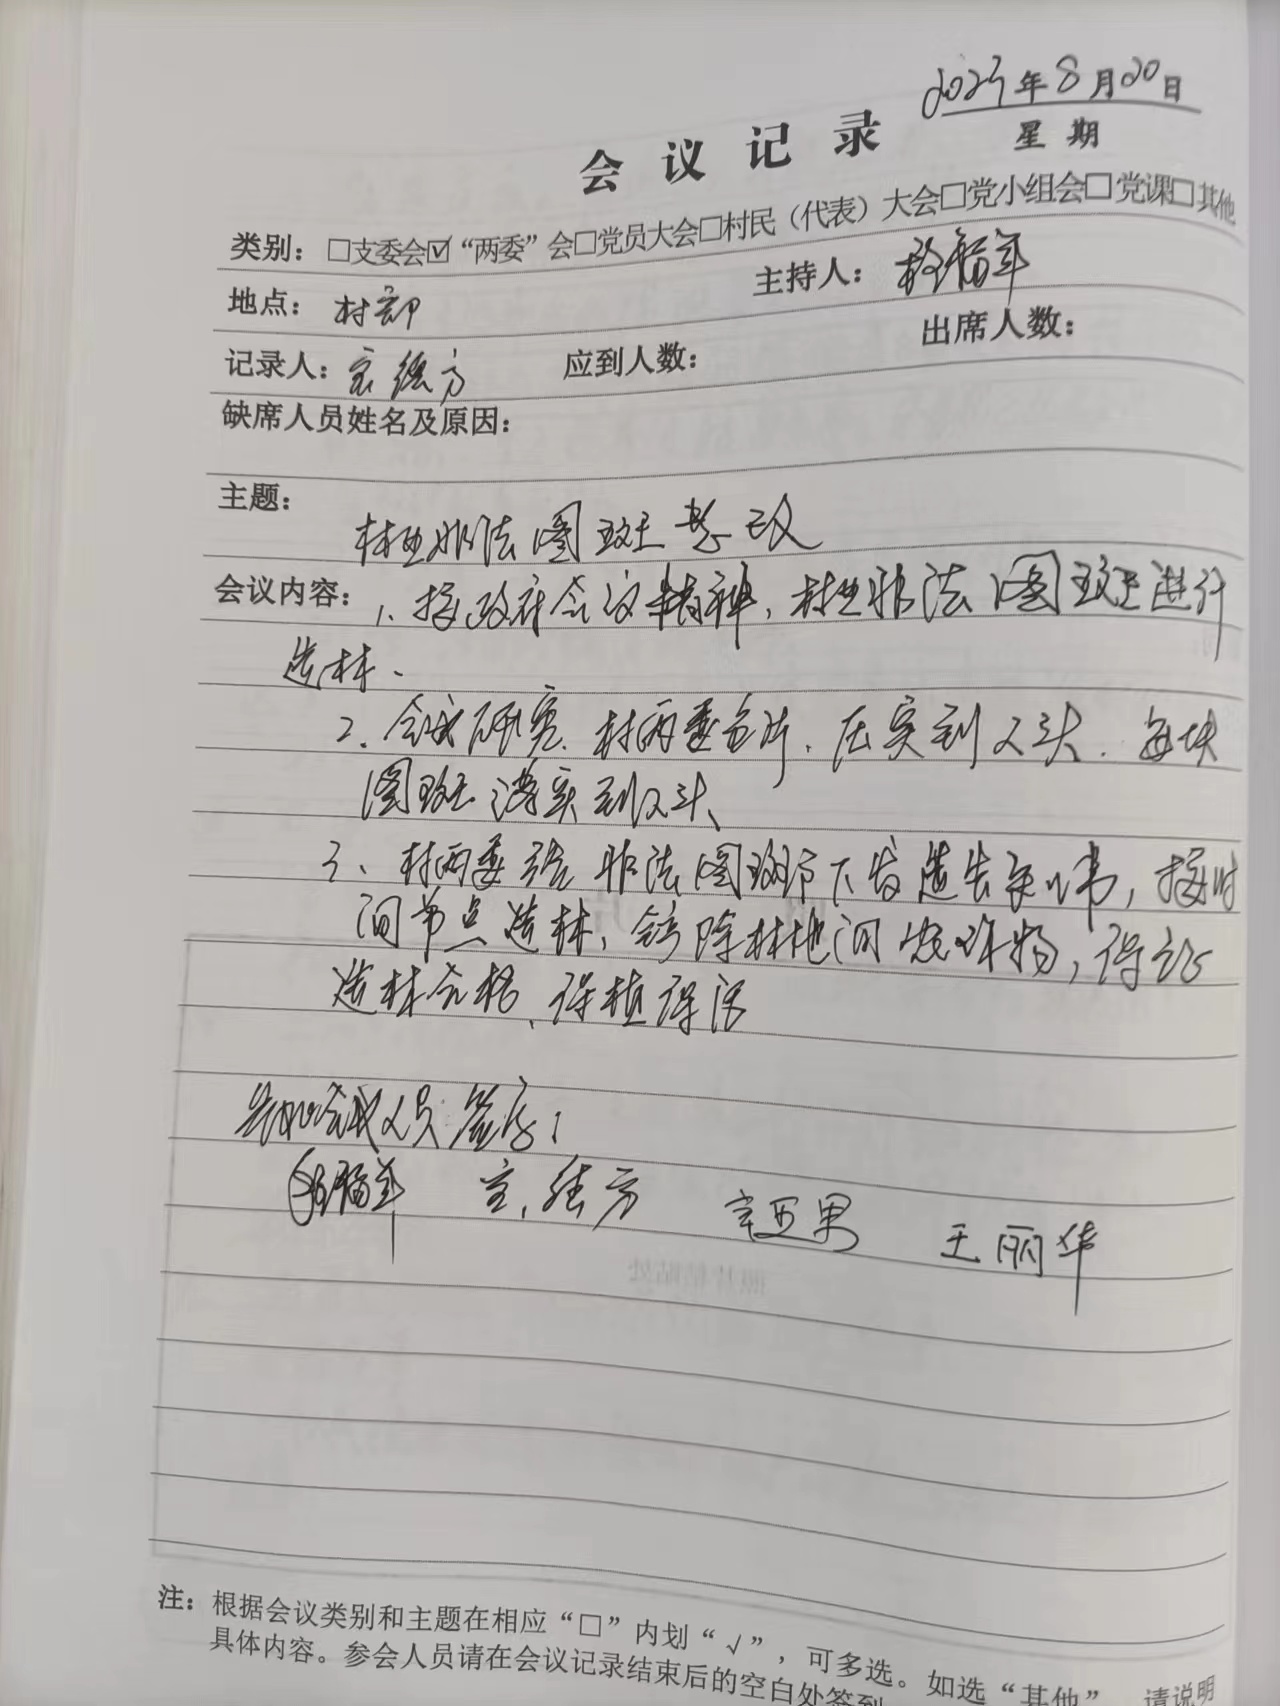 2023年8月20日
会议记录
星期
类别：□支委会☑“两委”会□党员大会□村民（代表）大会□党小组会□党课□其他
地点：村部
主持人：福军
记录人：德方
应到人数：
出席人数：
缺席人员姓名及原因：
主题：
林业非法图斑整改
会议内容：1、按政府会议精神，林业非法图斑进行
造林、
2、会议研究、村两委包片、压实到人头、每块
图斑落实到人头、
3、村两委给非法图斑户下发造林，按时
间节点造林，铲除林地间农作物，保证
造林合格、保植保活
参加会议人员签字：
福军 德方 亚男 王丽华
注：根据会议类别和主题在相应“□”内划“√”，可多选。如选“其他”，请说明
具体内容。参会人员请在会议记录结束后的空白处签到